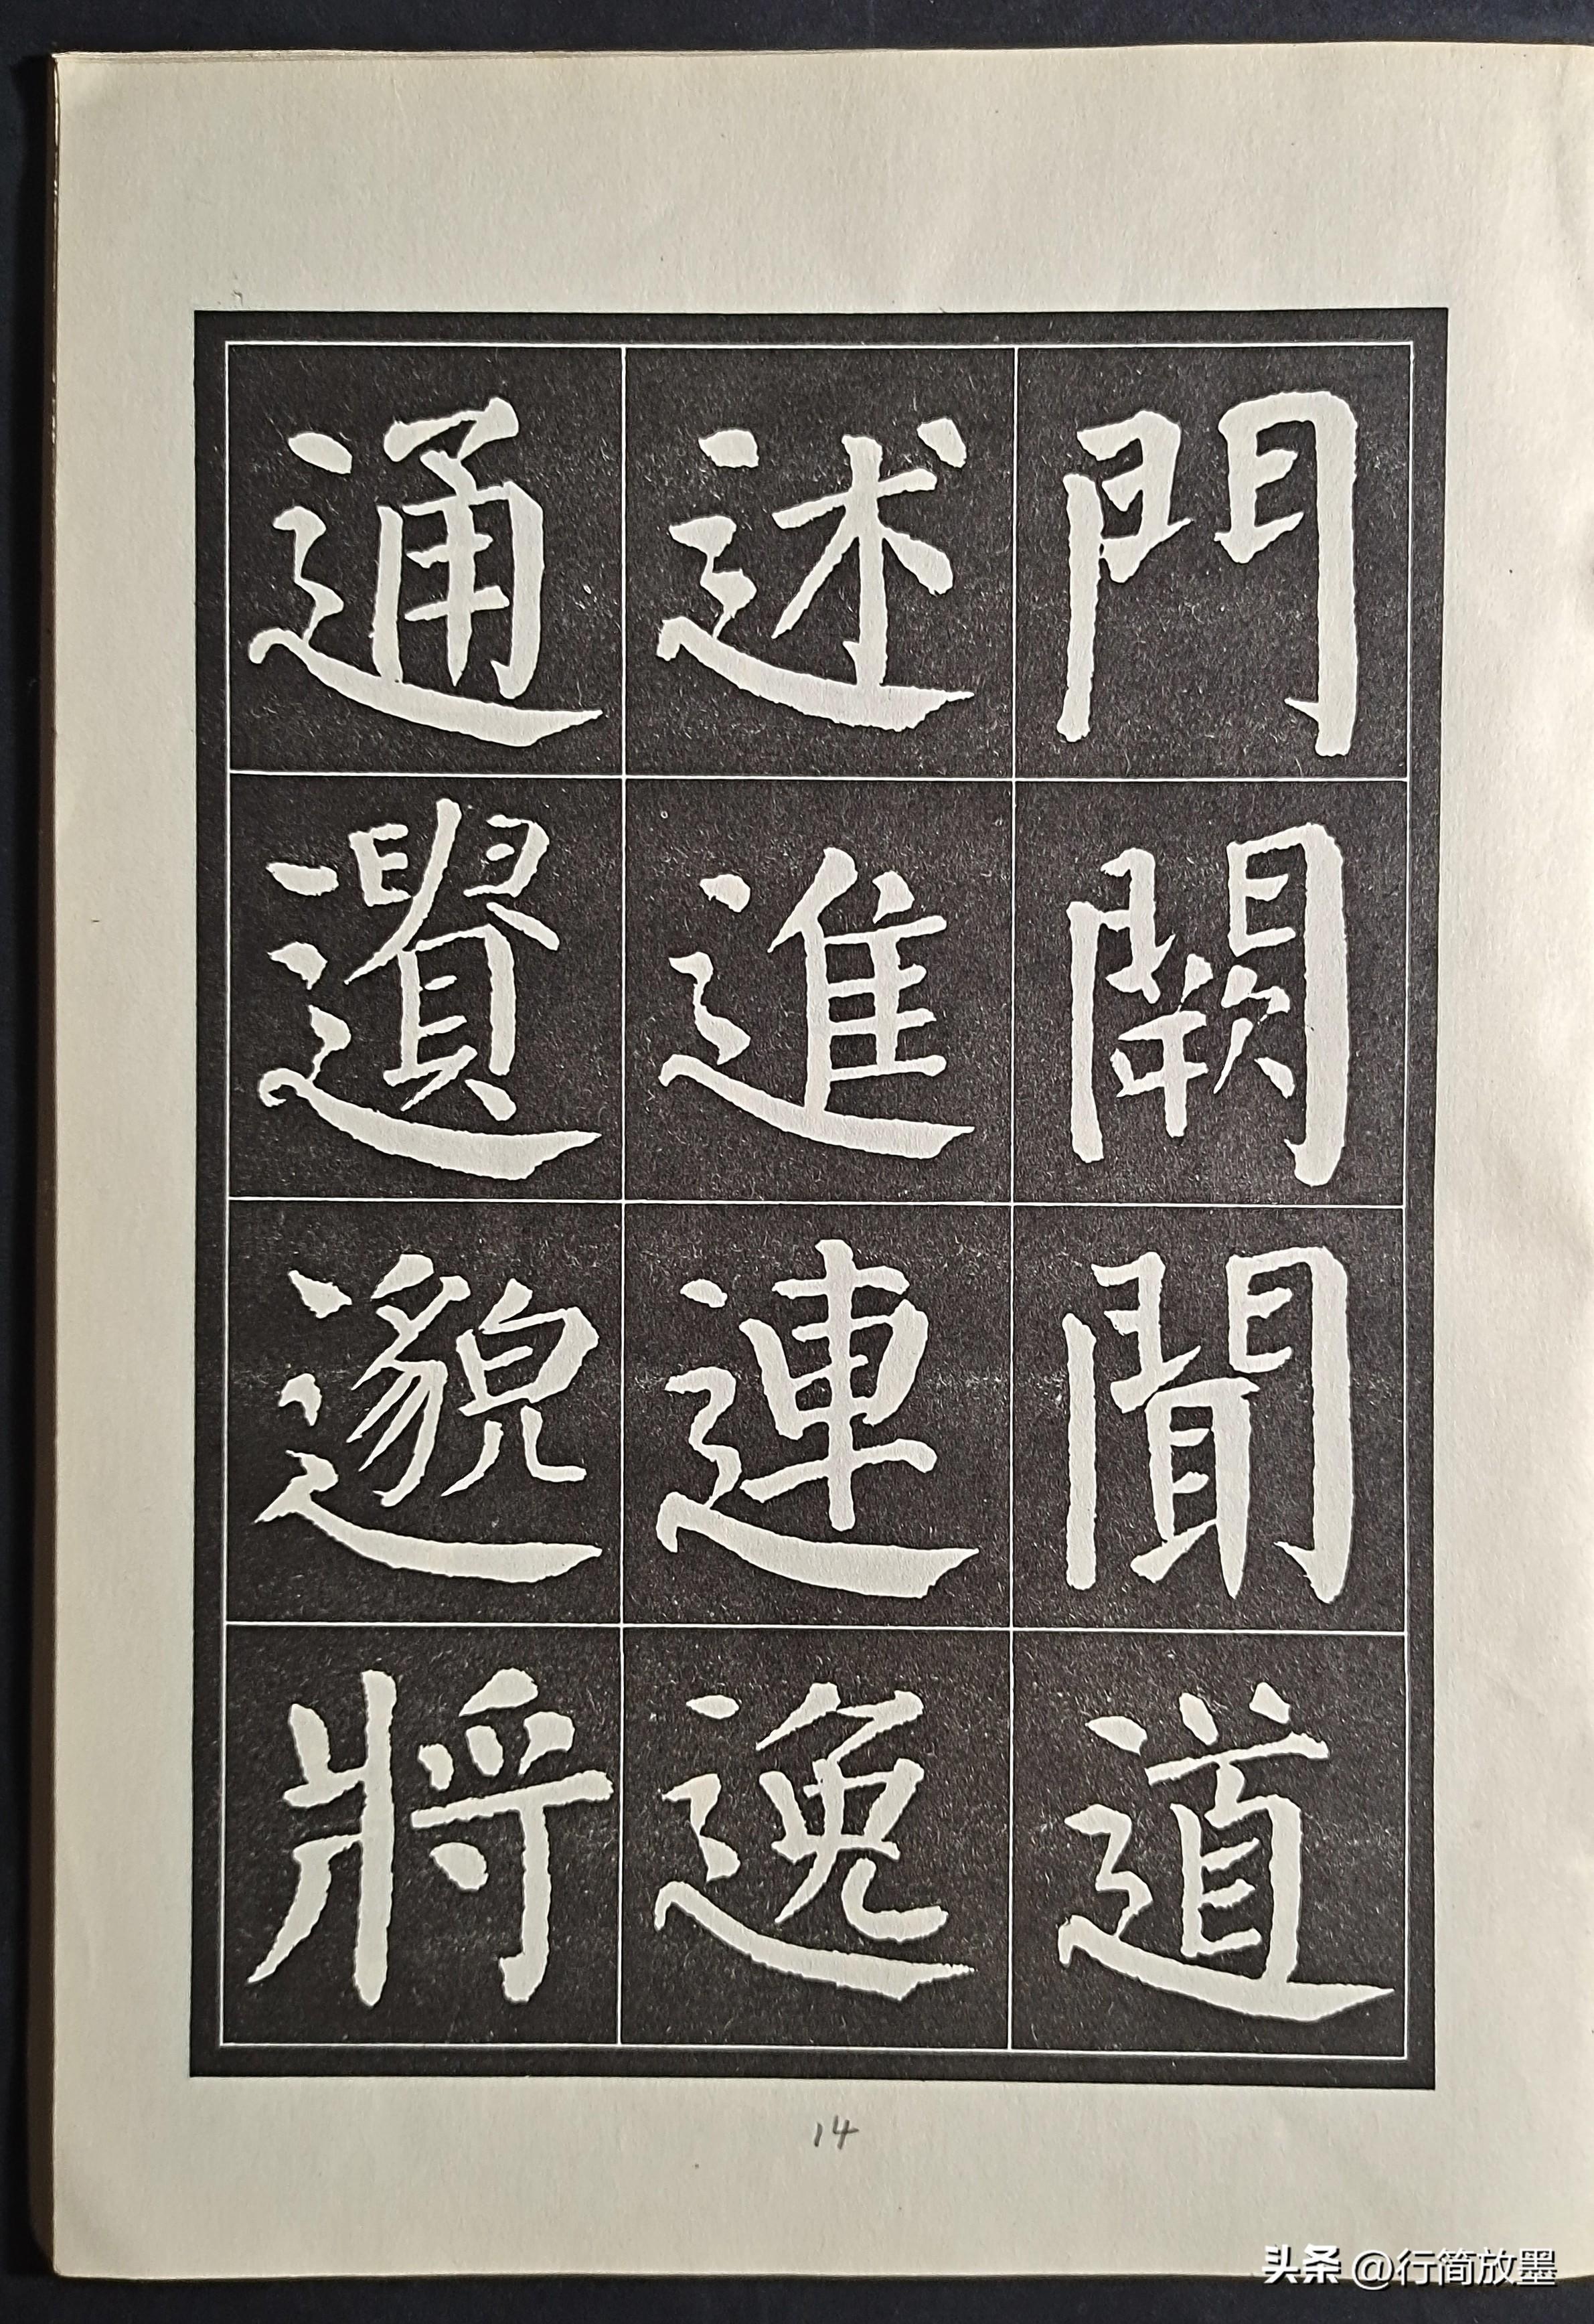 門闕聞道
述進連逸
通遺邈將
14
头条 @行简放墨